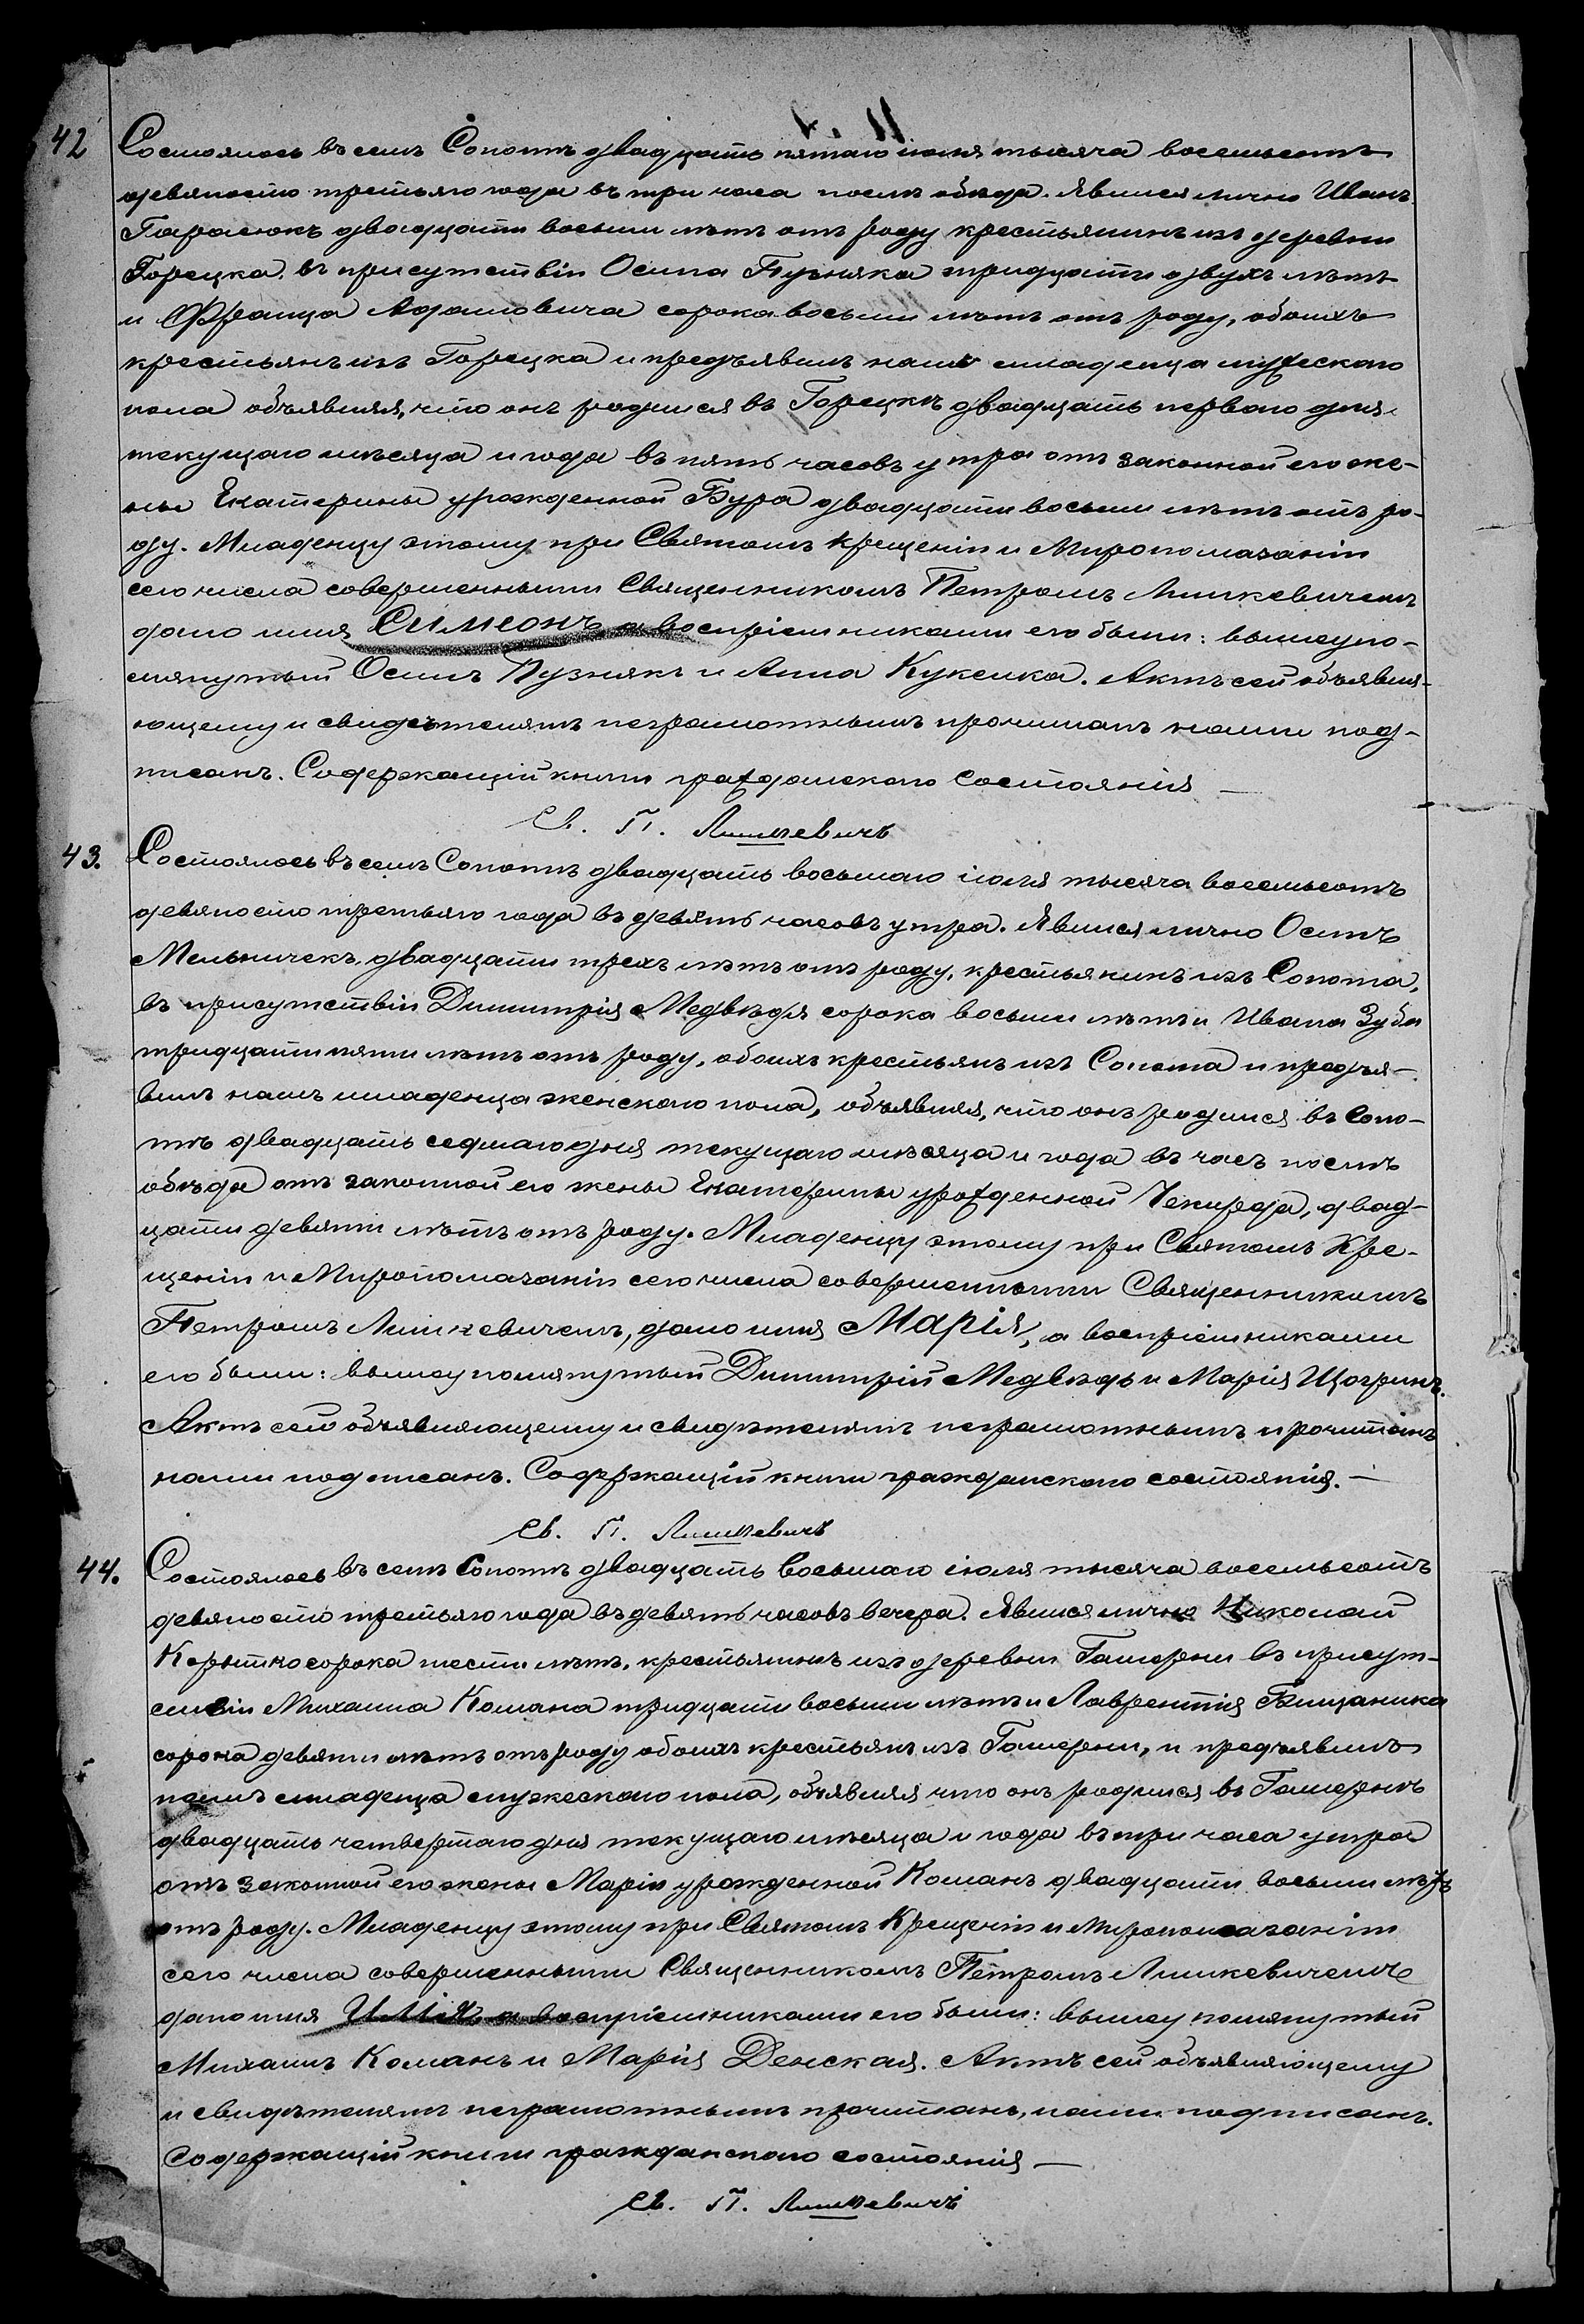 42 Состоялось въ селѣ Сопотѣ двадцать пятаго іюля тысяча восемьсотъ
девяносто третьяго года въ три часа послѣ обѣда. Явился лично Иванъ
Тарасюкъ двадцати восьми лѣтъ отъ роду крестьянинъ изъ деревни
Горецка, въ присутствіи Осипа Пузняка тридцати двухъ лѣтъ
и Франца Адамовича сорока восьми лѣтъ отъ роду, обоихъ
крестьянъ изъ Горецка и предъявилъ намъ младенца мужескаго
пола объявляя, что онъ родился въ Горецкѣ двадцать перваго дня
текущаго мѣсяца и года въ пять часовъ утра отъ законной его же-
ны Екатерины урожденной Бура двадцати восьми лѣтъ отъ ро-
ду. Младенцу этому при Святомъ Крещеніи и Миропомазаніи
сего числа совершенными Священникомъ Петромъ Лишкевичемъ
дано имя Симеонъ, а воспріемниками его были: вышеупо-
мянутый Осипъ Пузнякъ и Анна Кукелка. Актъ сей объявля-
ющему и свидѣтелямъ неграмотнымъ прочитанъ нами под-
писанъ. Содержащій книги гражданскаго состоянія —
Св. П. Лишкевичъ
43. Состоялось въ селѣ Сопотѣ двадцать восьмаго іюля тысяча восемьсотъ
девяносто третьяго года въ девять часовъ утра. Явился лично Осипъ
Мельничекъ двадцати трехъ лѣтъ отъ роду, крестьянинъ изъ Сопота,
въ присутствіи Димитрія Медвѣдя сорока восьми лѣтъ и Ивана Зуба
тридцати пяти лѣтъ отъ роду, обоихъ крестьянъ изъ Сопота и предъя-
вилъ намъ младенца женскаго пола, объявляя, что онъ родился въ Сопо-
тѣ двадцать седмаго дня текущаго мѣсяца и года въ часъ послѣ
обѣда отъ законной его жены Екатерины урожденной Чекирда, двад-
цати девяти лѣтъ отъ роду. Младенцу этому при Святомъ Кре-
щеніи и Миропомазаніи сего числа совершенными Священникомъ
Петромъ Лишкевичемъ, дано имя Марія, а воспріемниками
его были: вышеупомянутый Димитрій Медвѣдь и Марія Щогринъ.
Актъ сей объявляющему и свидѣтелямъ неграмотнымъ прочитанъ
нами подписанъ. Содержащій книги гражданскаго состоянія. —
Св. П. Лишкевичъ
44. Состоялось въ селѣ Сопотѣ двадцать восьмаго іюля тысяча восемьсотъ
девяносто третьяго года въ девять часовъ вечера. Явился лично Николай
Корытко сорока шести лѣтъ, крестьянинъ изъ деревни Гамерни въ присут-
ствіи Михаила Комана тридцати восьми лѣтъ и Лаврентія
сорока девяти лѣтъ отъ роду обоихъ крестьянъ изъ Гамерни, и предъявилъ
намъ младенца мужескаго пола, объявляя что онъ родился въ Гамернѣ
двадцать четвертаго дня текущаго мѣсяца и года въ три часа утра
отъ законной его жены Маріи урожденной Команъ двадцати восьми лѣтъ
отъ роду. Младенцу этому при Святомъ Крещеніи и Миропомазаніи
сего числа совершенными Священникомъ Петромъ Лишкевичемъ
дано имя Илія, а воспріемниками его были: вышеупомянутый
Михаилъ Команъ и Марія Денская. Актъ сей объявляющему
и свидѣтелямъ неграмотнымъ прочитанъ, нами подписанъ.
Содержащій книги гражданскаго состоянія —
Св. П. Лишкевичъ